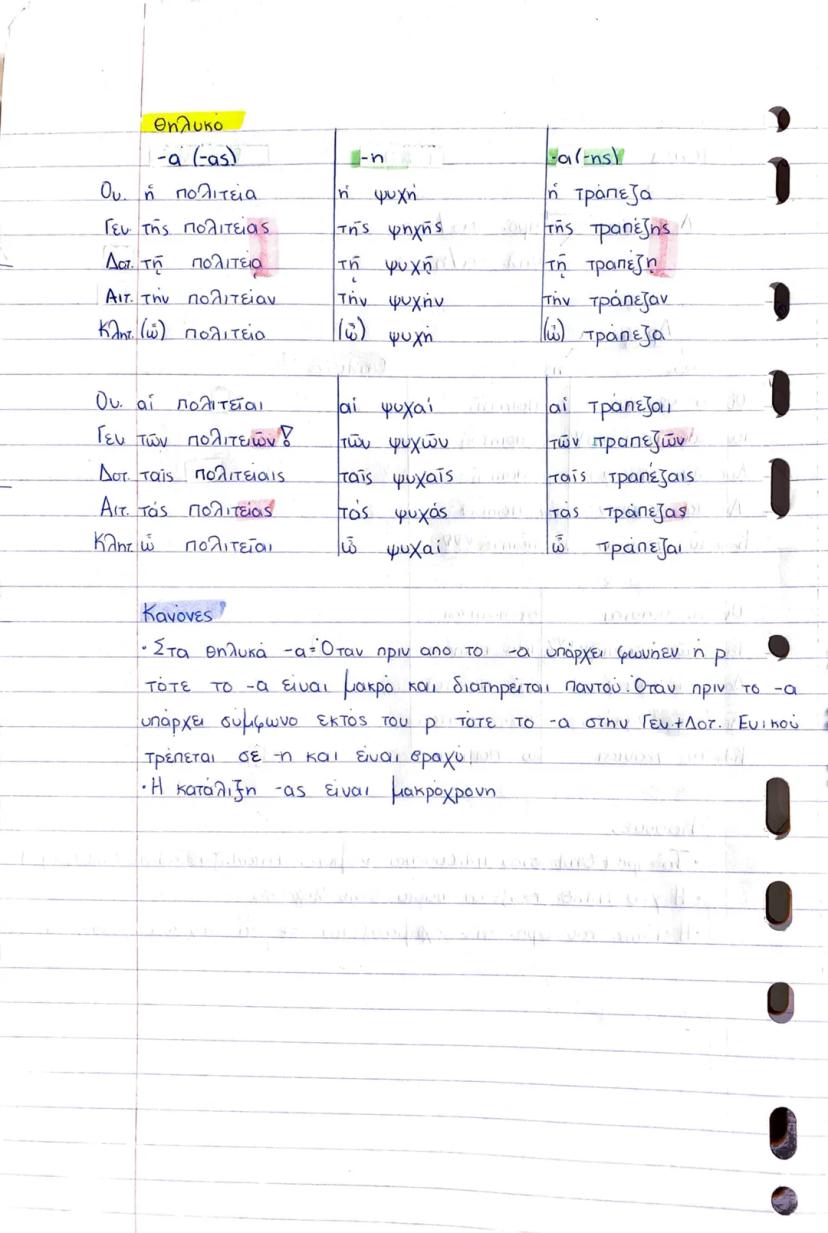 Θηλυκό
-α (-ας) -η -α (-ης)
Ον. ἡ πολιτεία ἡ ψυχή ἡ τράπεζα
Γεν τῆς πολιτείας τῆς ψηχῆς τῆς τραπέζης
Δοτ. τῇ πολιτείᾳ τῇ ψυχῇ τῇ τραπέζῃ
Αιτ. τήν πολιτείαν τήν ψυχήν τήν τράπεζαν
Κλητ. (ὦ) πολιτεία (ὦ) ψυχή (ὦ) τράπεζα
Ον. αἱ πολιτεῖαι αἱ ψυχαί αἱ τράπεζαι
Γεν τῶν πολιτειῶν! τῶν ψυχῶν τῶν τραπεζῶν
Δοτ. ταῖς πολιτείαις ταῖς ψυχαῖς ταῖς τραπέζαις
Αιτ. τάς πολιτείας τάς ψυχάς τάς τράπεζας
Κλητ. ὦ πολιτεῖαι ὦ ψυχαί ὦ τράπεζαι
Κανόνες
·Στα θηλυκά -α: Όταν πριν απο το -α υπάρχει φωνήεν ή ρ
τότε το -α είναι μακρό και διατηρείται παντού. Όταν πριν το -α
υπάρχει σύμφωνο εκτός του ρ τότε το -α στην Γεν+Δοτ. Ενικού
τρέπεται σε -η και είναι βραχύ
·Η κατάλιξη -ας είναι μακρόχρονη